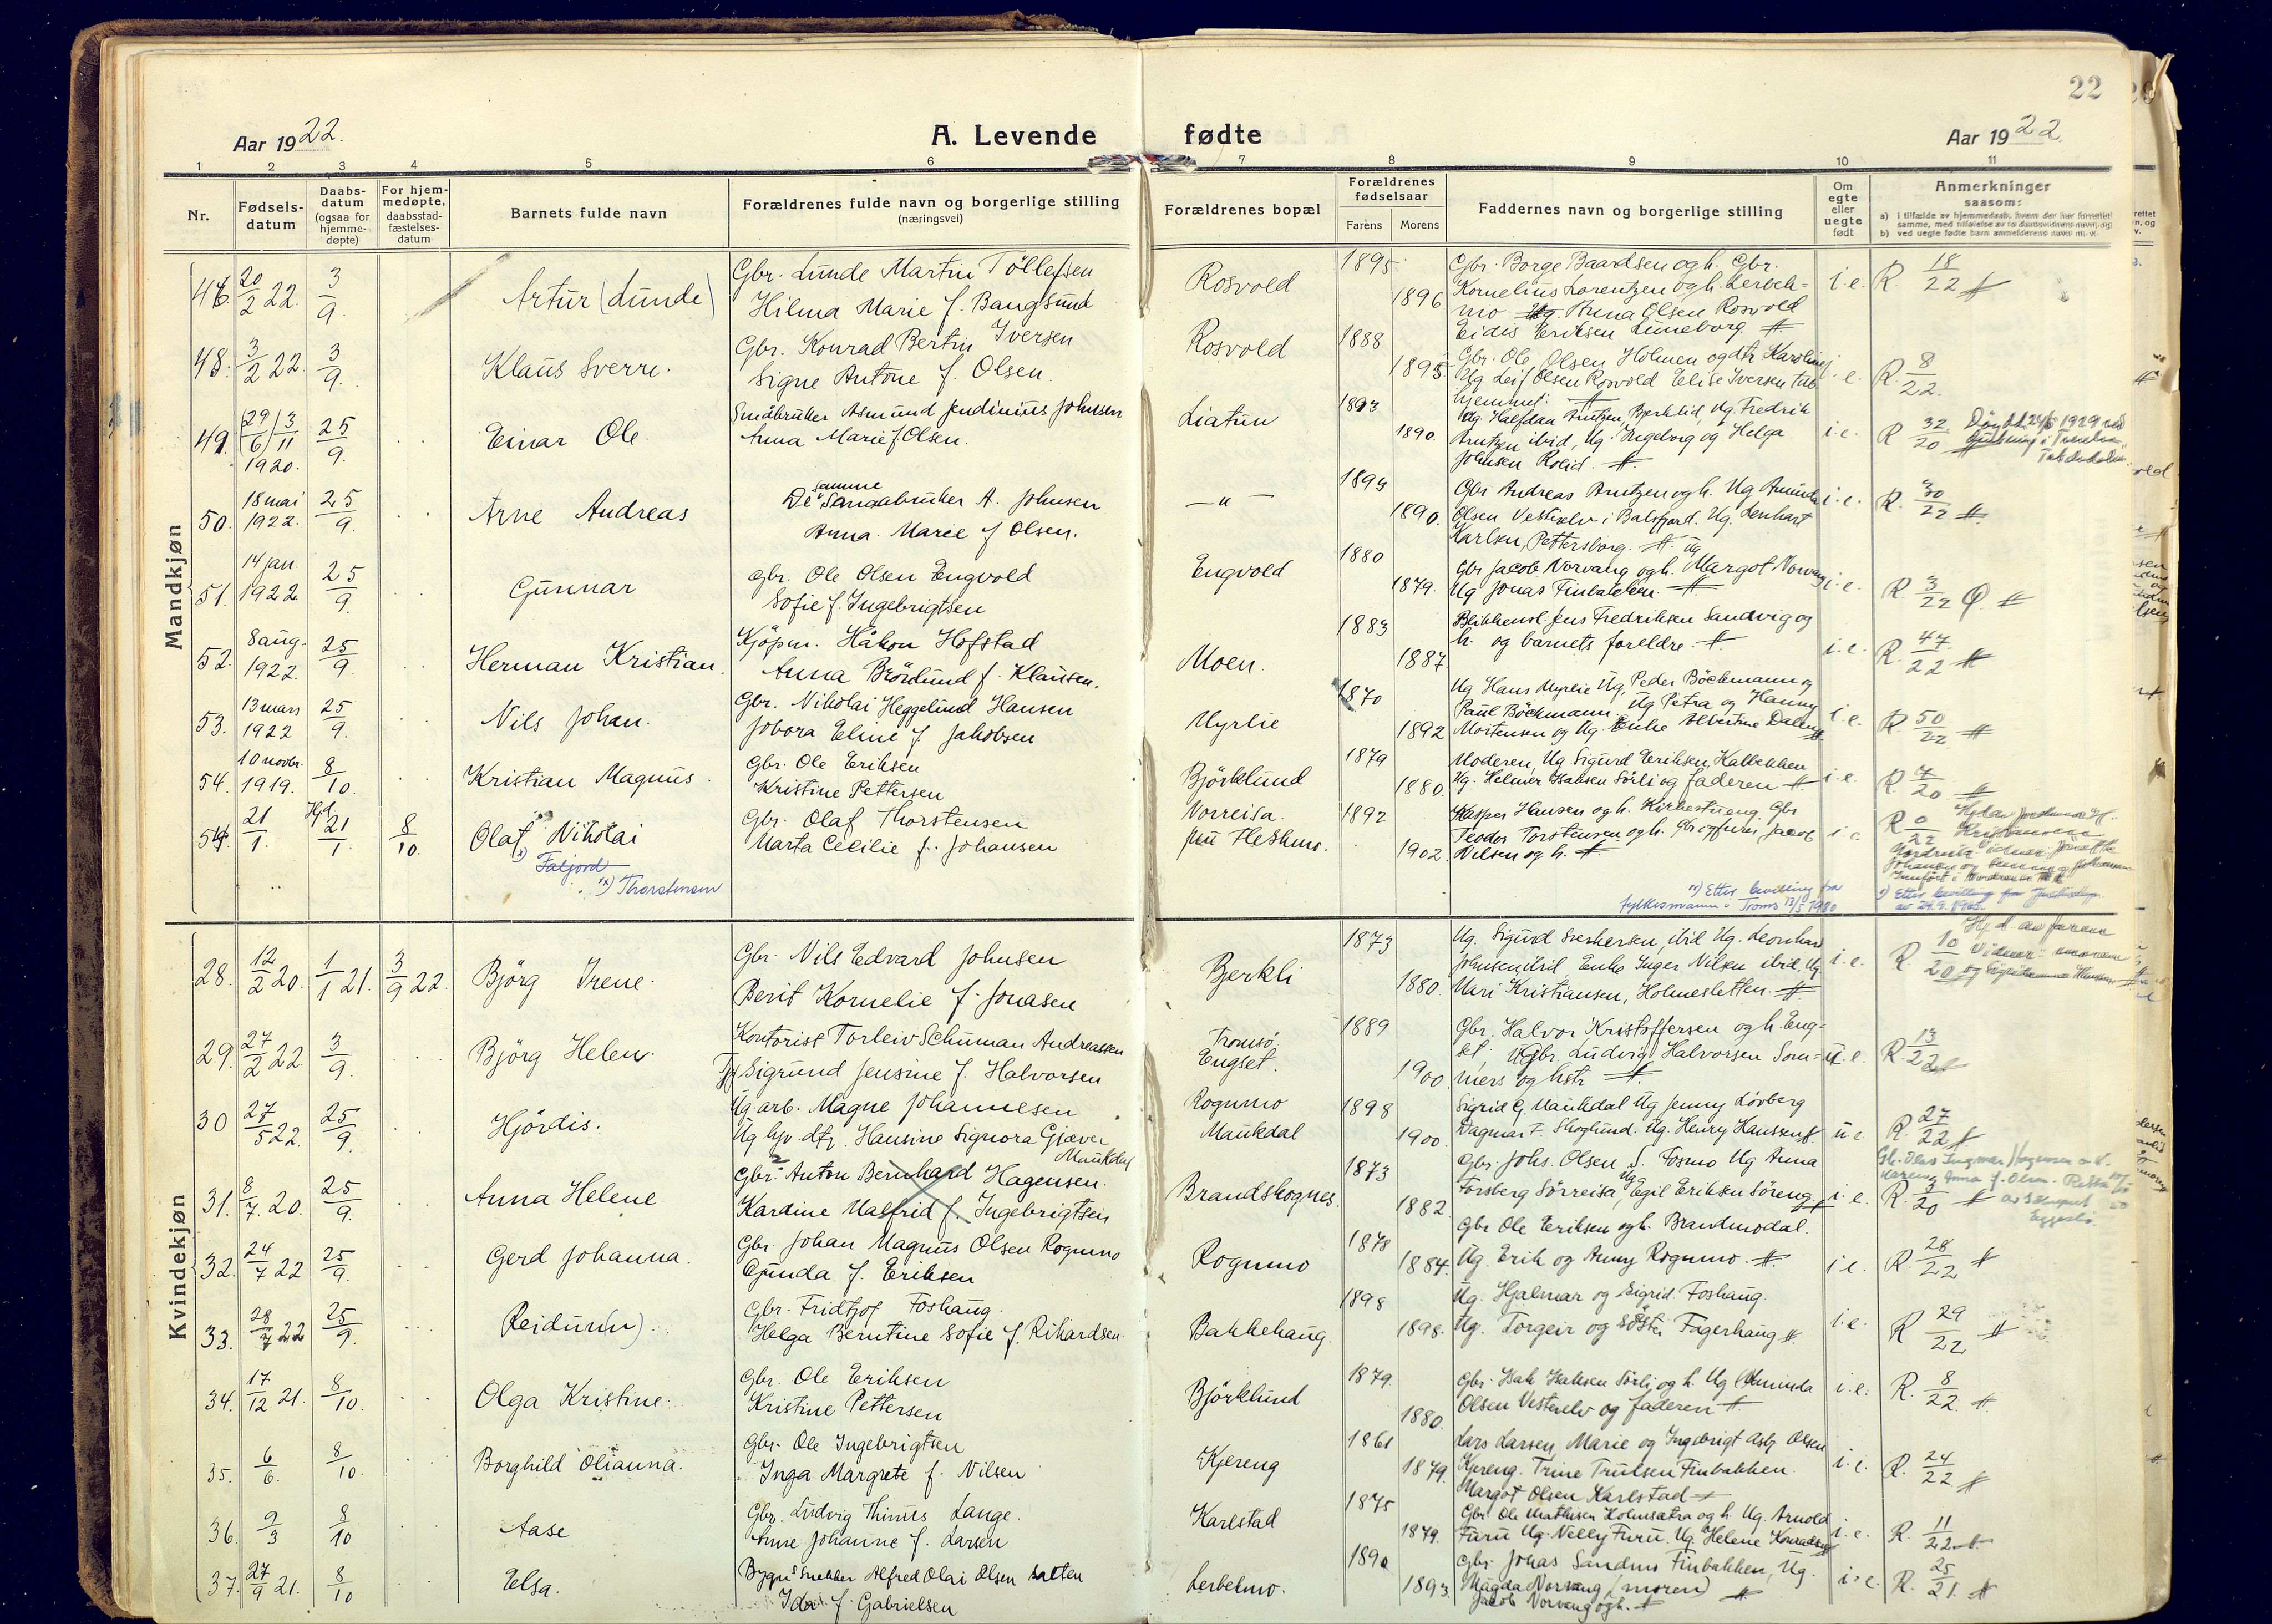 22
Aar 1922.
A. Levende fødte
Aar 1922.
1 2 3 4 5 6 7 8 9 10 11
Nr.
Fødsels-
datum
Daabs-
datum
(ogsaa for
hjemme-
døpte)
For hjem-
medøpte,
daabsstad-
fæstelses-
datum
Barnets fulde navn
Forældrenes fulde navn og borgerlige stilling
(næringsvei)
Forældrenes bopæl
Forældrenes
fødselsaar
Farens Morens
Faddernes navn og borgerlige stilling
Om
egte
eller
uegte
født
Anmerkninger
saasom:
a) i tilfælde av hjemmedaab, hvem der har forrettet
samme, med tilføielse av to daabsvidners navn, og
b) ved uegte fødte barn anmelderens navn m. v.
Mandkjøn
20/2 22. 3/9. Artur (Lunde) Gbr. Lunde Martin Tollefsen Rosvold 1895 Gbr. Borge Baardsen og h. Gbr. i.e. R. 18/22
Hilma Marie f. Bangsund 1896 Kornelius Lorentzen og h.
Anna Olsen Rosvold
48. 3/2 22. 3/9. Klaus Sverre. Gbr. Konrad Bertin Iversen Rosvold 1888 Eidis Eriksen Luneborg
Signe Antone f. Olsen. 1895 Gbr. Ole Olsen Holmen og dtr Karoline i.e. R. 8/22.
Ug Leif Olsen Rosvold Elise Iversen
hjemmet.
49. 29/6 3/11 1920. 25/9. Einar Ole. Småbruker Asmund Jendinius Johnsen Liatun 1893 Ug. Halfdan Arntzen, Bjerklid, Ug. Fredrik
Anna Marie f Olsen. 1890. Arntzen ibid, Ug. Ingeborg og Helga i.e. R 32/20
Johnsen Rolid.
50. 18 mai 1922. 25/9. Arne Andreas De samme A. Johnsen — " — 1893 Gbr Andreas Arntzen og h. Ug i.e. R. 30/22
Anna Marie f Olsen. 1890. Olsen Vestkelv i Balsfjord. Ug. Lenhart
Karlsen, Pettersborg.
51. 14 jan. 1922 25/9. Gunnar gbr. Ole Olsen Engvold Engvold 1880 Gbr Jacob Norvang og h. Margot Norvang i.e. R. 3/22
Sofie f. Ingebrigtsen 1879. Ug Jonas Finbakken.
52. 8 aug. 1922. 25/9. Herman Kristian. Kjöpm. Håkon Hofstad Moen. 1883 Jens Fredriksen Sandvig og i.e. R. 47/22
Anna Brölund f. Klausen. 1887. h. og barnets foreldre.
53. 13 mars 1922 25/9. Nils Johan. Gbr. Nikolai Heggelund Hansen Myrlie 1870 Ug Hans Myrlie Ug, Peder Böckmann og
Jobora Eline f Jakobsen 1892 Paul Böckmann, Ug Petra og Hanny i.e. R. 50/22
Mortensen og Ug. Enke Albertine Daleng
54. 10 novbr. 1919. 8/10. Kristian Magnus. gbr. Ole Eriksen Björklund 1879 Moderen, Ug. Sigurd Eriksen, Kalbekken
Kristine Pettersen 1880. Ug. Helmer Isaksen Sörli og faderen i.e. R. 7/20.
54. 21/1. Hjd 21/1 8/10. Olaf Nikolai Gbr. Olaf Thorstensen Norreisa. 1892 Kasper Hansen og h. Kirkestueng. Gbr
Faljord Marta Cecilie f. Johansen 1902. Teodor Torstensen og h. Jacob R 0/22
x) Thorstensen Nilsen og h.
x) Etter bevilling fra
fylkesmannen i Troms 13/5 1980
Kvindekjøn
28. 12/2 20. 1/1 21. 3/9 22. Björg Irene. Gbr. Nils Edvard Johnsen Bjerkli 1873 Ug. Sigurd ibid Ug. Leonhard
Berit Kornelie f. Jonasen 1880. Johnsen ibid, Enke Inger Nilsen ibid, Ug. i.e. R. 10/20
Mari Kristiansen, Holmesletten.
Hjd av faren
Vidner: moren
29. 27/2 22. 3/9. Björg Helen. Kontorist Torleiv Schuman Andreassen Tromsø. 1889 Gbr. Halvor Kristoffersen og h. Eng-
Sigrund Jensine f. Halvorsen Engset. 1900 set. Ludvig Halvorsen Som- u.e. R. 13/22
mers og hstr
30 27/5 22. 25/9. Hjördis. Ug. arb. Magne Johannesen Rogumo 1898 Sigrid G. Maukdal Ug Jenny Lövberg
Ug hjv. dtr. Hansine Signora Gjæver Maukdal 1900. Dagmar F. Skoglund. Ug. Henry Hanssen u.e R. 27/22
Maukdal
31. 8/7. 20. 25/9. Anna Helene Gbr. Anton Bernhard Hagensen. Brandskognes. 1873 Gbr. Johs. Olsen S. Fosmo Ug Anna
Kardine Malfrid f. Ingebrigtsen 1882 Forsberg Sörreisa, Ug Egil Eriksen Söreng i.e. R. 3/20
32. 24/7 22 25/9. Gerd Johanna. Gbr. Johan Magnus Olsen Rogumo Rogumo 1878 Gbr Ole Eriksen og h. Brandmodal.
Gjunda f. Eriksen 1884. Ug. Erik og Anny Rogumo. i.e. R. 28/22
33. 28/7 22 25/9. Reidun(n). Gbr. Fridtjof Foshaug. Bakkehaug. 1898 Ug. Hjalmar og Sigrid Foshaug.
Helga Berntine Sofie f. Rikardsen. 1898. Ug. Torgeir og söster Fagerhaug i.e. R 29/22
34. 17/12 21. 8/10. Olga Kristine. Gbr. Ole Eriksen Björklund 1879. Gbr. Isak Isaksen Sörli og h. Ug i.e. R. 8/22
Kristine Pettersen 1880. Olsen Vesterelv og faderen
35. 6/6. 8/10. Borghild Olianna. Gbr. Ole Ingebrigtsen Kjereng 1861 Lars Larsen Marie og Ingebrigt Asbj Olsen
Inga Margrete f. Nilsen 1879. Kjereng. Trine Trulsen Finbakken. i.e. R. 24/22
Margot Olsen Karlstad
36. 9/3 8/10 Aase Gbr. Ludvig Thinus Lange. Karlstad 1875 Gbr. Ole Mathisen Holmsætra og h. Ug. Arnold
Anne Johanne f. Larsen 1879. Furu Ug. Nelly Furu. Ug. Helene i.e. R. 11/22
37. 27/9 21. 8/10 Elsa. Bygn. Snekker Alfred Olai Olsen Lerbekmo. 1890 Gbr. Johas Sandmo Finbakken, Ug.
Ida f. Gabrielsen 1893 Magda Norvang (moren) i.e. R. 25/21.
Jacob Norvang og h.